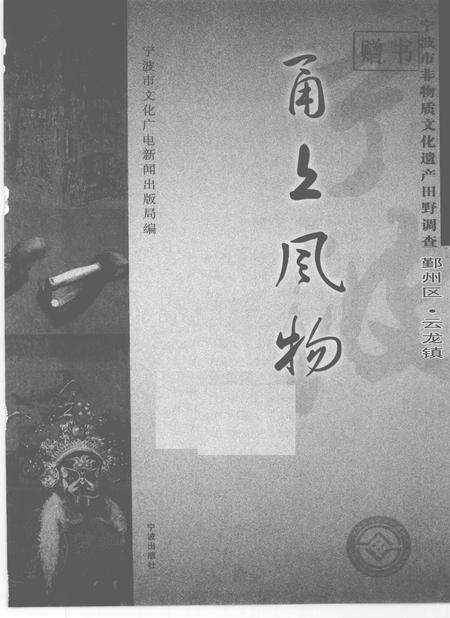 赠书
宁波市非物质文化遗产田野调查
鄞州区·云龙镇
甬上风物
宁波市文化广电新闻出版局编
宁波出版社